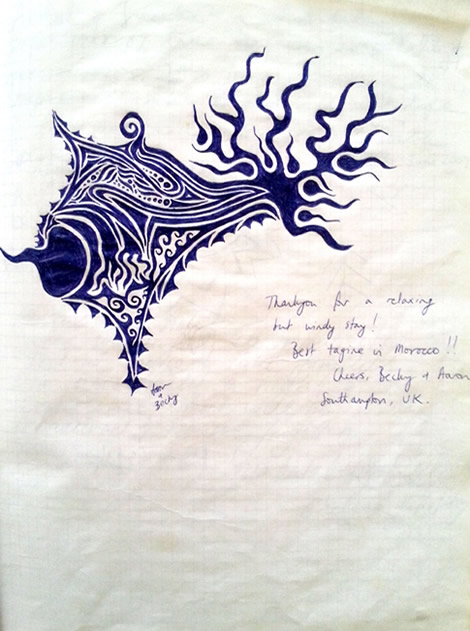 Thankyou for a relaxing
but windy stay!
Best tagine in Morocco!!
Cheers, Becky + Aaron
Southampton, UK.
+
Becky